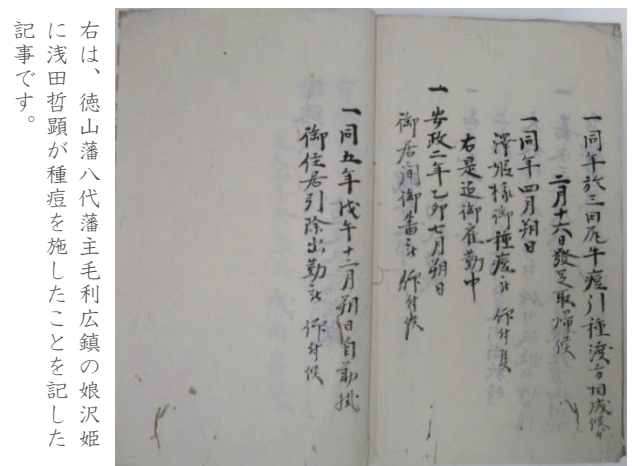 一同年於三田尻牛痘引種渡方相成候付
二月十六日發足取帰候
一同年四月朔日
澤姫様御種痘被 仰付候
右是迠御雇勤中
一安政二年乙卯七月朔日
御居間御番被 仰付候
一同五年戊午十二月朔日自勤掛
御住居引除出勤被 仰付候
右は、徳山藩八代藩主毛利広鎮の娘沢姫
に浅田哲顕が種痘を施したことを記した
記事です。